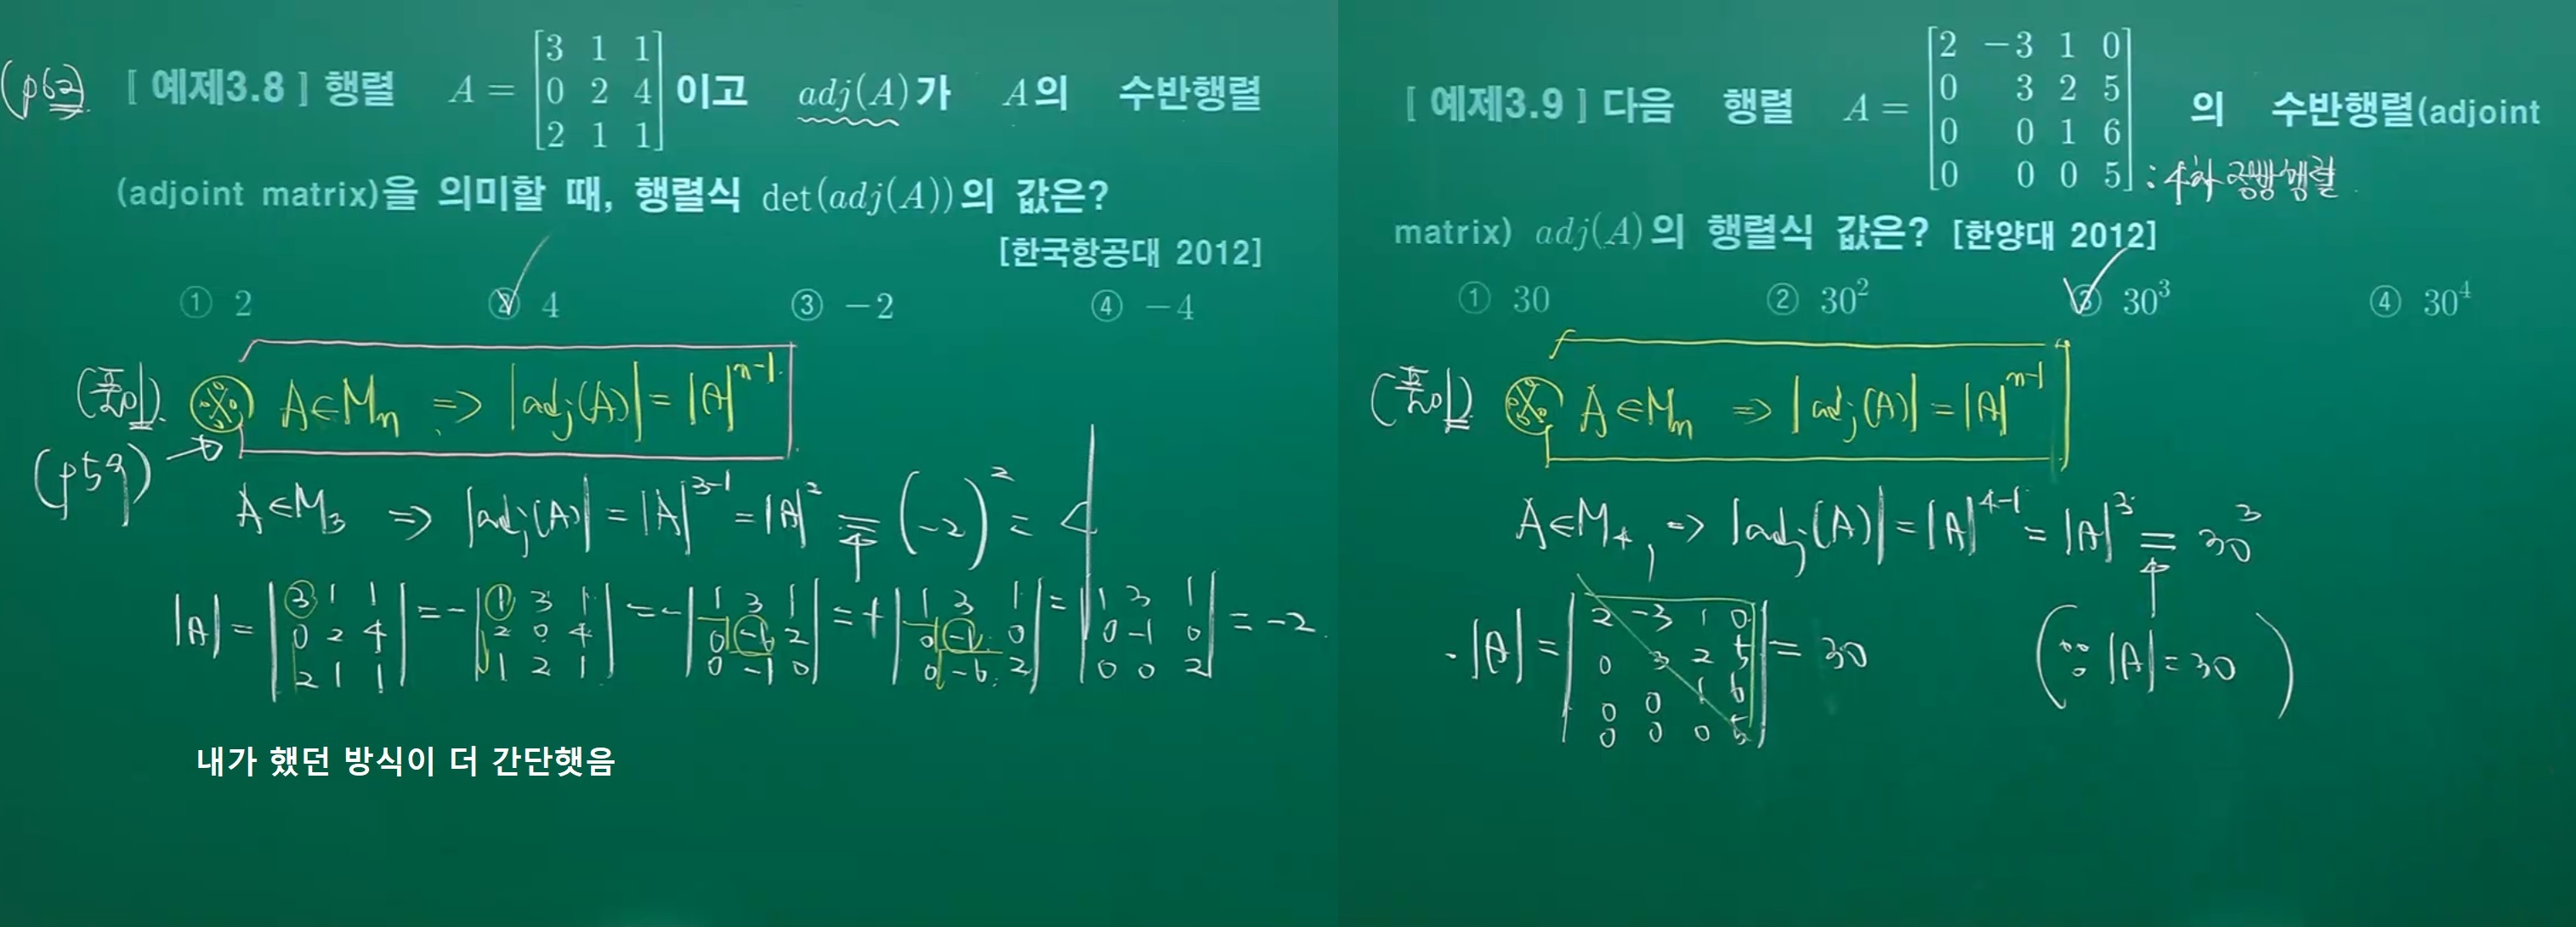 (p62) [예제3.8] 행렬 A = [3 1 1; 0 2 4; 2 1 1] 이고 adj(A)가 A의 수반행렬
(adjoint matrix)을 의미할 때, 행렬식 det(adj(A))의 값은?
[한국항공대 2012]
① 2 ② 4 ③ −2 ④ −4
(풀이) A∈Mn => |adj(A)| = |A|^(n-1)
(p59) →
A∈M3 => |adj(A)| = |A|^(3-1) = |A|^2 = (-2)^2 = 4
|A| = |3 1 1; 0 2 4; 2 1 1| = -|1 3 1; 2 0 4; 1 2 1| = -|1 3 1; 0 -6 2; 0 -1 0| = +|1 3 1; 0 -1 0; 0 -6 2| = |1 3 1; 0 -1 0; 0 0 2| = -2
내가 했던 방식이 더 간단햇음
[예제3.9] 다음 행렬 A = [2 −3 1 0; 0 3 2 5; 0 0 1 6; 0 0 0 5] 의 수반행렬(adjoint
: 4차 정방행렬
matrix) adj(A)의 행렬식 값은? [한양대 2012]
① 30 ② 30^2 ③ 30^3 ④ 30^4
(풀이) A∈Mn => |adj(A)| = |A|^(n-1)
A∈M4, => |adj(A)| = |A|^(4-1) = |A|^3 = 30^3
·|A| = |2 -3 1 0; 0 3 2 5; 0 0 1 6; 0 0 0 5| = 30 (∵ |A| = 30)